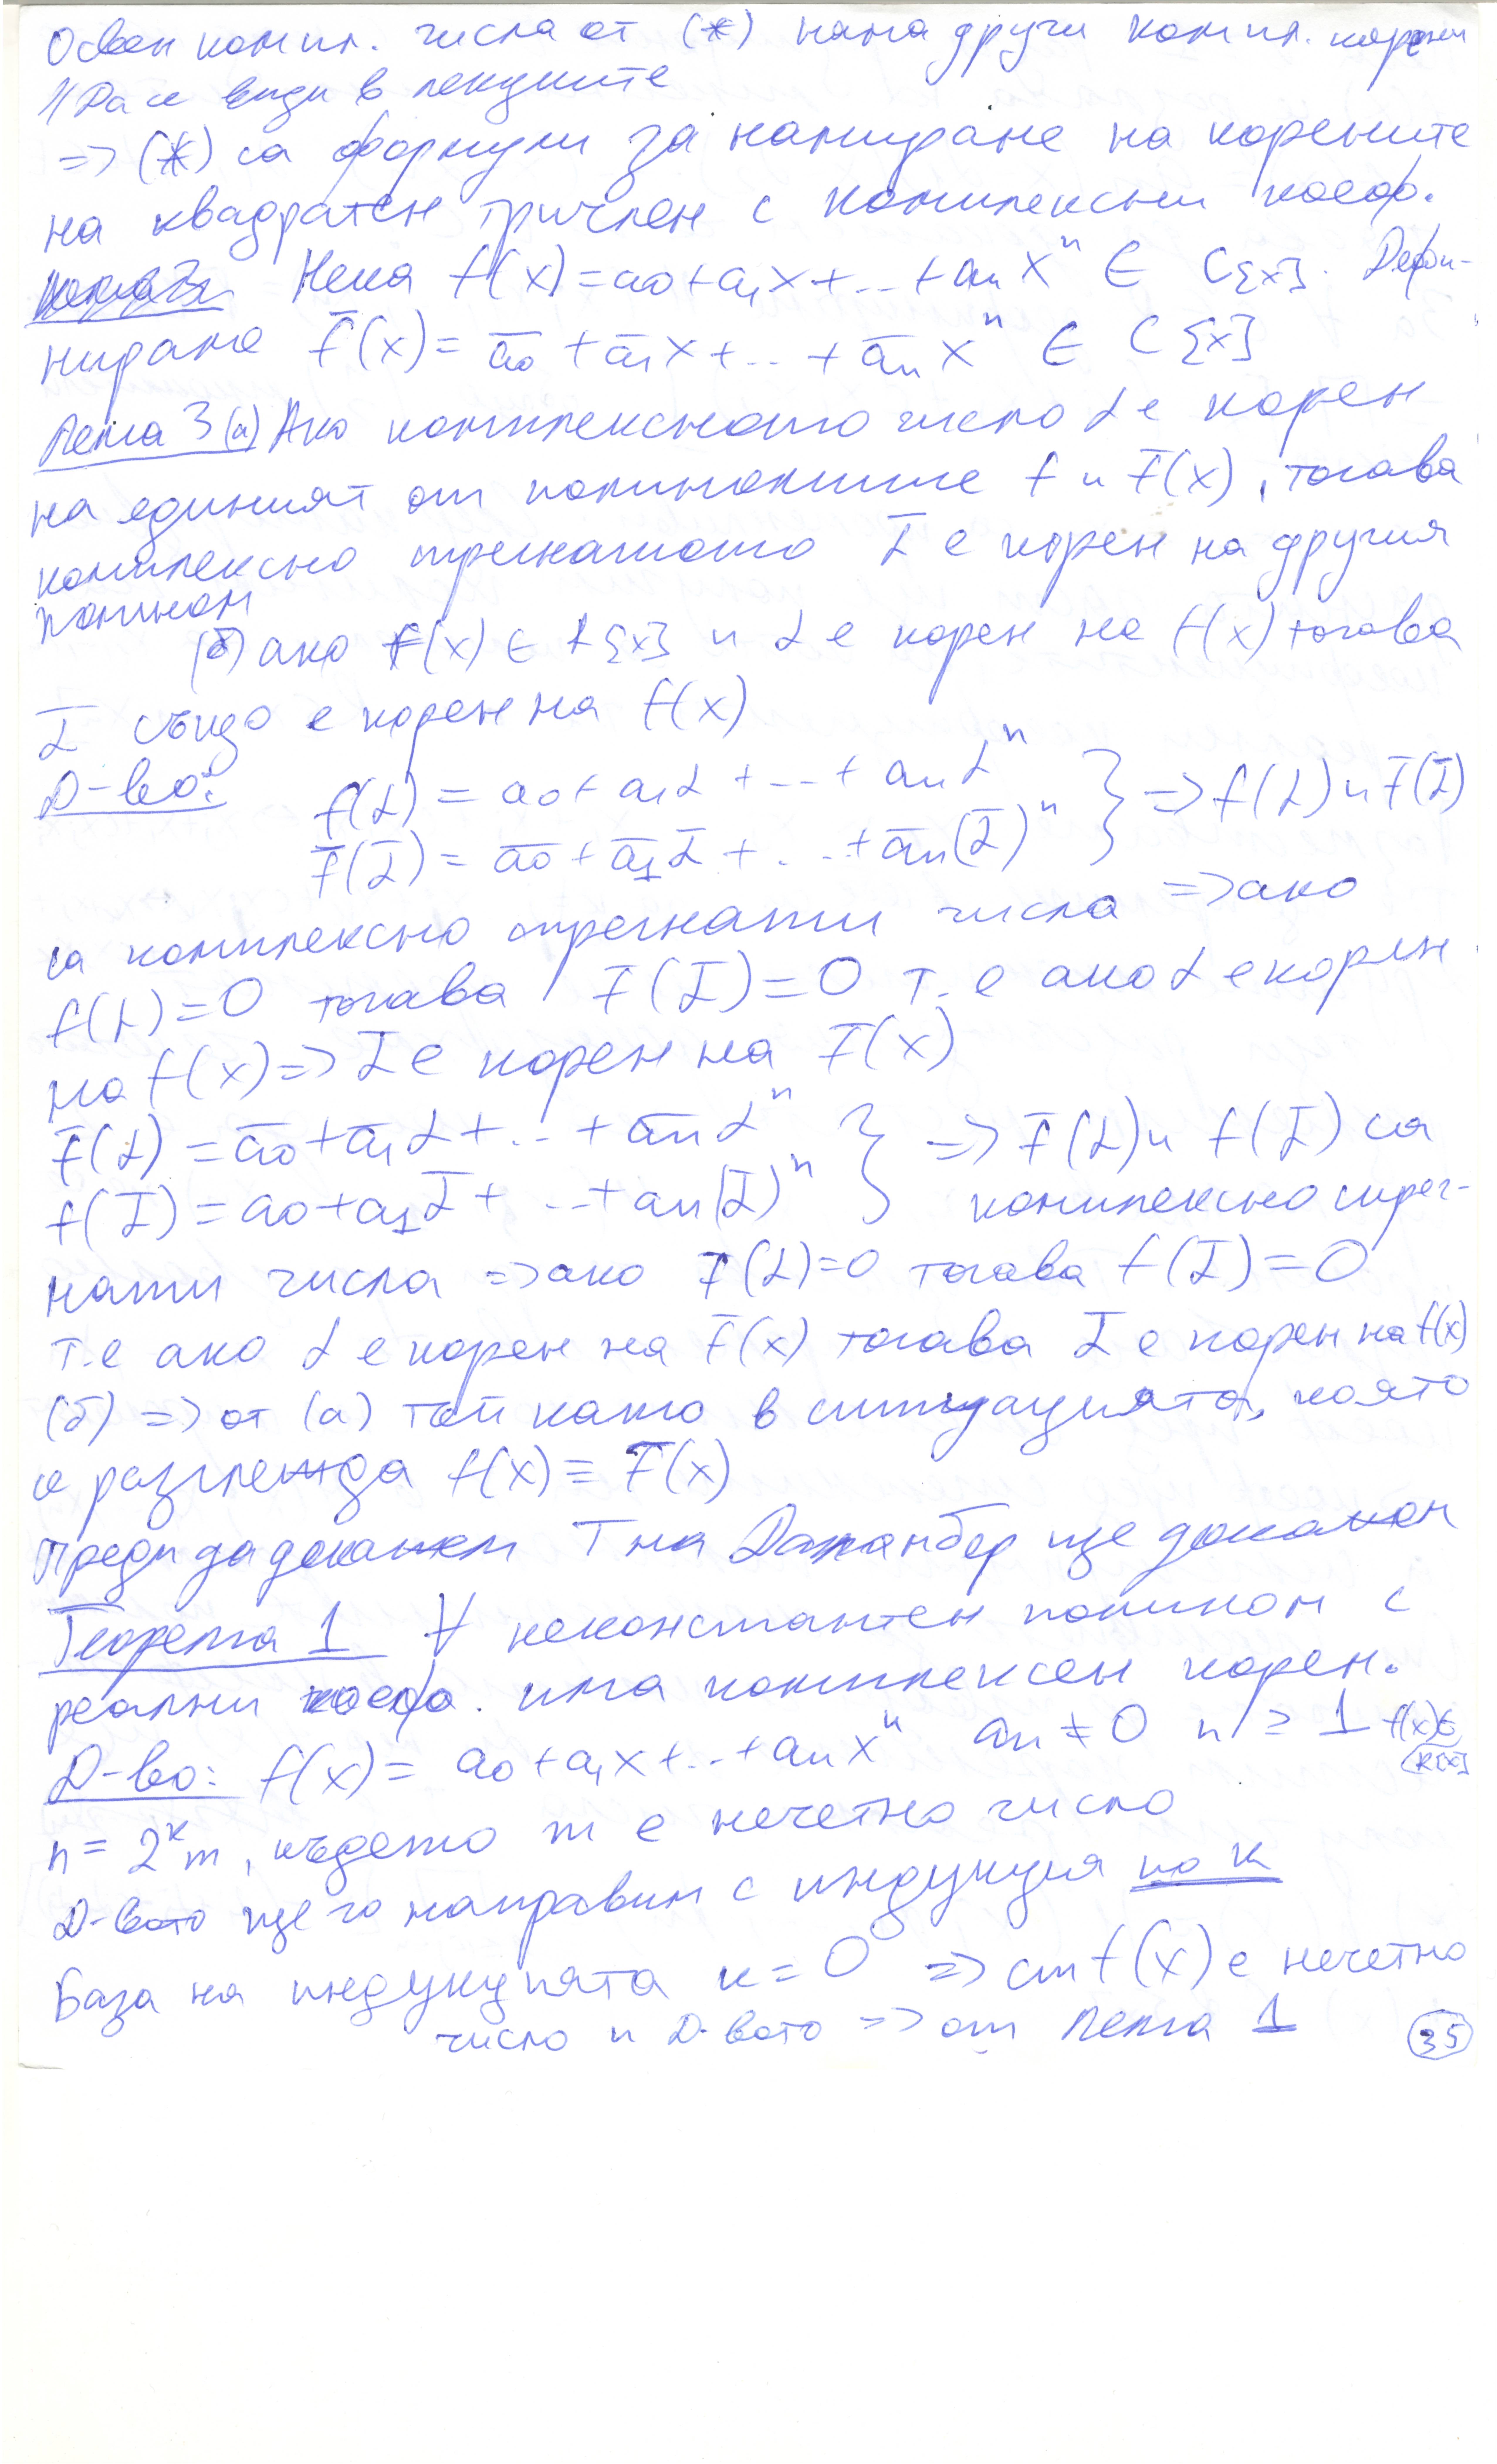 Освен компл. числа от (*) няма други компл. корени
// Да се види в лекциите
=> (*) са формули за намиране на корените
на квадратен тричлен с комплексни коеф.
Нека f(x) = a₀ + a₁x + ... + aₙxⁿ ∈ C{x]. Дефи-
нираме f̅(x) = a̅₀ + a̅₁x + ... + a̅ₙxⁿ ∈ C{x]
Лема 3 (а) Ако комплексното число α е корен
на единият от полиномите f и f̅(x), тогава
комплексно спрегнатото α̅ е корен на другия
полином
(б) ако f(x) ∈ R{x] и α е корен на f(x) тогава
α̅ също е корен на f(x)
Д-во: f(α) = a₀ + a₁α + ... + aₙαⁿ } => f(α) и f̅(α̅)
f̅(α̅) = a̅₀ + a̅₁α̅ + ... + a̅ₙ(α̅)ⁿ
са комплексно спрегнати числа => ако
f(α) = 0 тогава f̅(α̅) = 0 т.е ако α е корен
на f(x) => α̅ е корен на f̅(x)
f̅(α) = a̅₀ + a̅₁α + ... + a̅ₙαⁿ } => f̅(α) и f(α̅) са
f(α̅) = a₀ + a₁α̅ + ... + aₙ(α̅)ⁿ комплексно спрег-
нати числа => ако f̅(α) = 0 тогава f(α̅) = 0
т.е ако α е корен на f̅(x) тогава α̅ е корен на f(x)
(б) => от (а) тъй като в ситуацията, която
се разглежда f(x) ≡ f̅(x)
Преди да докажем Т на Даламбер ще докажем
Теорема 1 ∀ неконстантен полином с
реални коеф. има комплексен корен.
Д-во: f(x) = a₀ + a₁x + ... + aₙxⁿ aₙ ≠ 0 n ≥ 1 f(x) ∈ R[x]
n = 2ᵏm, където m е нечетно число
Д-вото ще го направим с индукция по k
База на индукцията k = 0 => ст f(x) е нечетно
число и Д-вото => от Лема 1
35